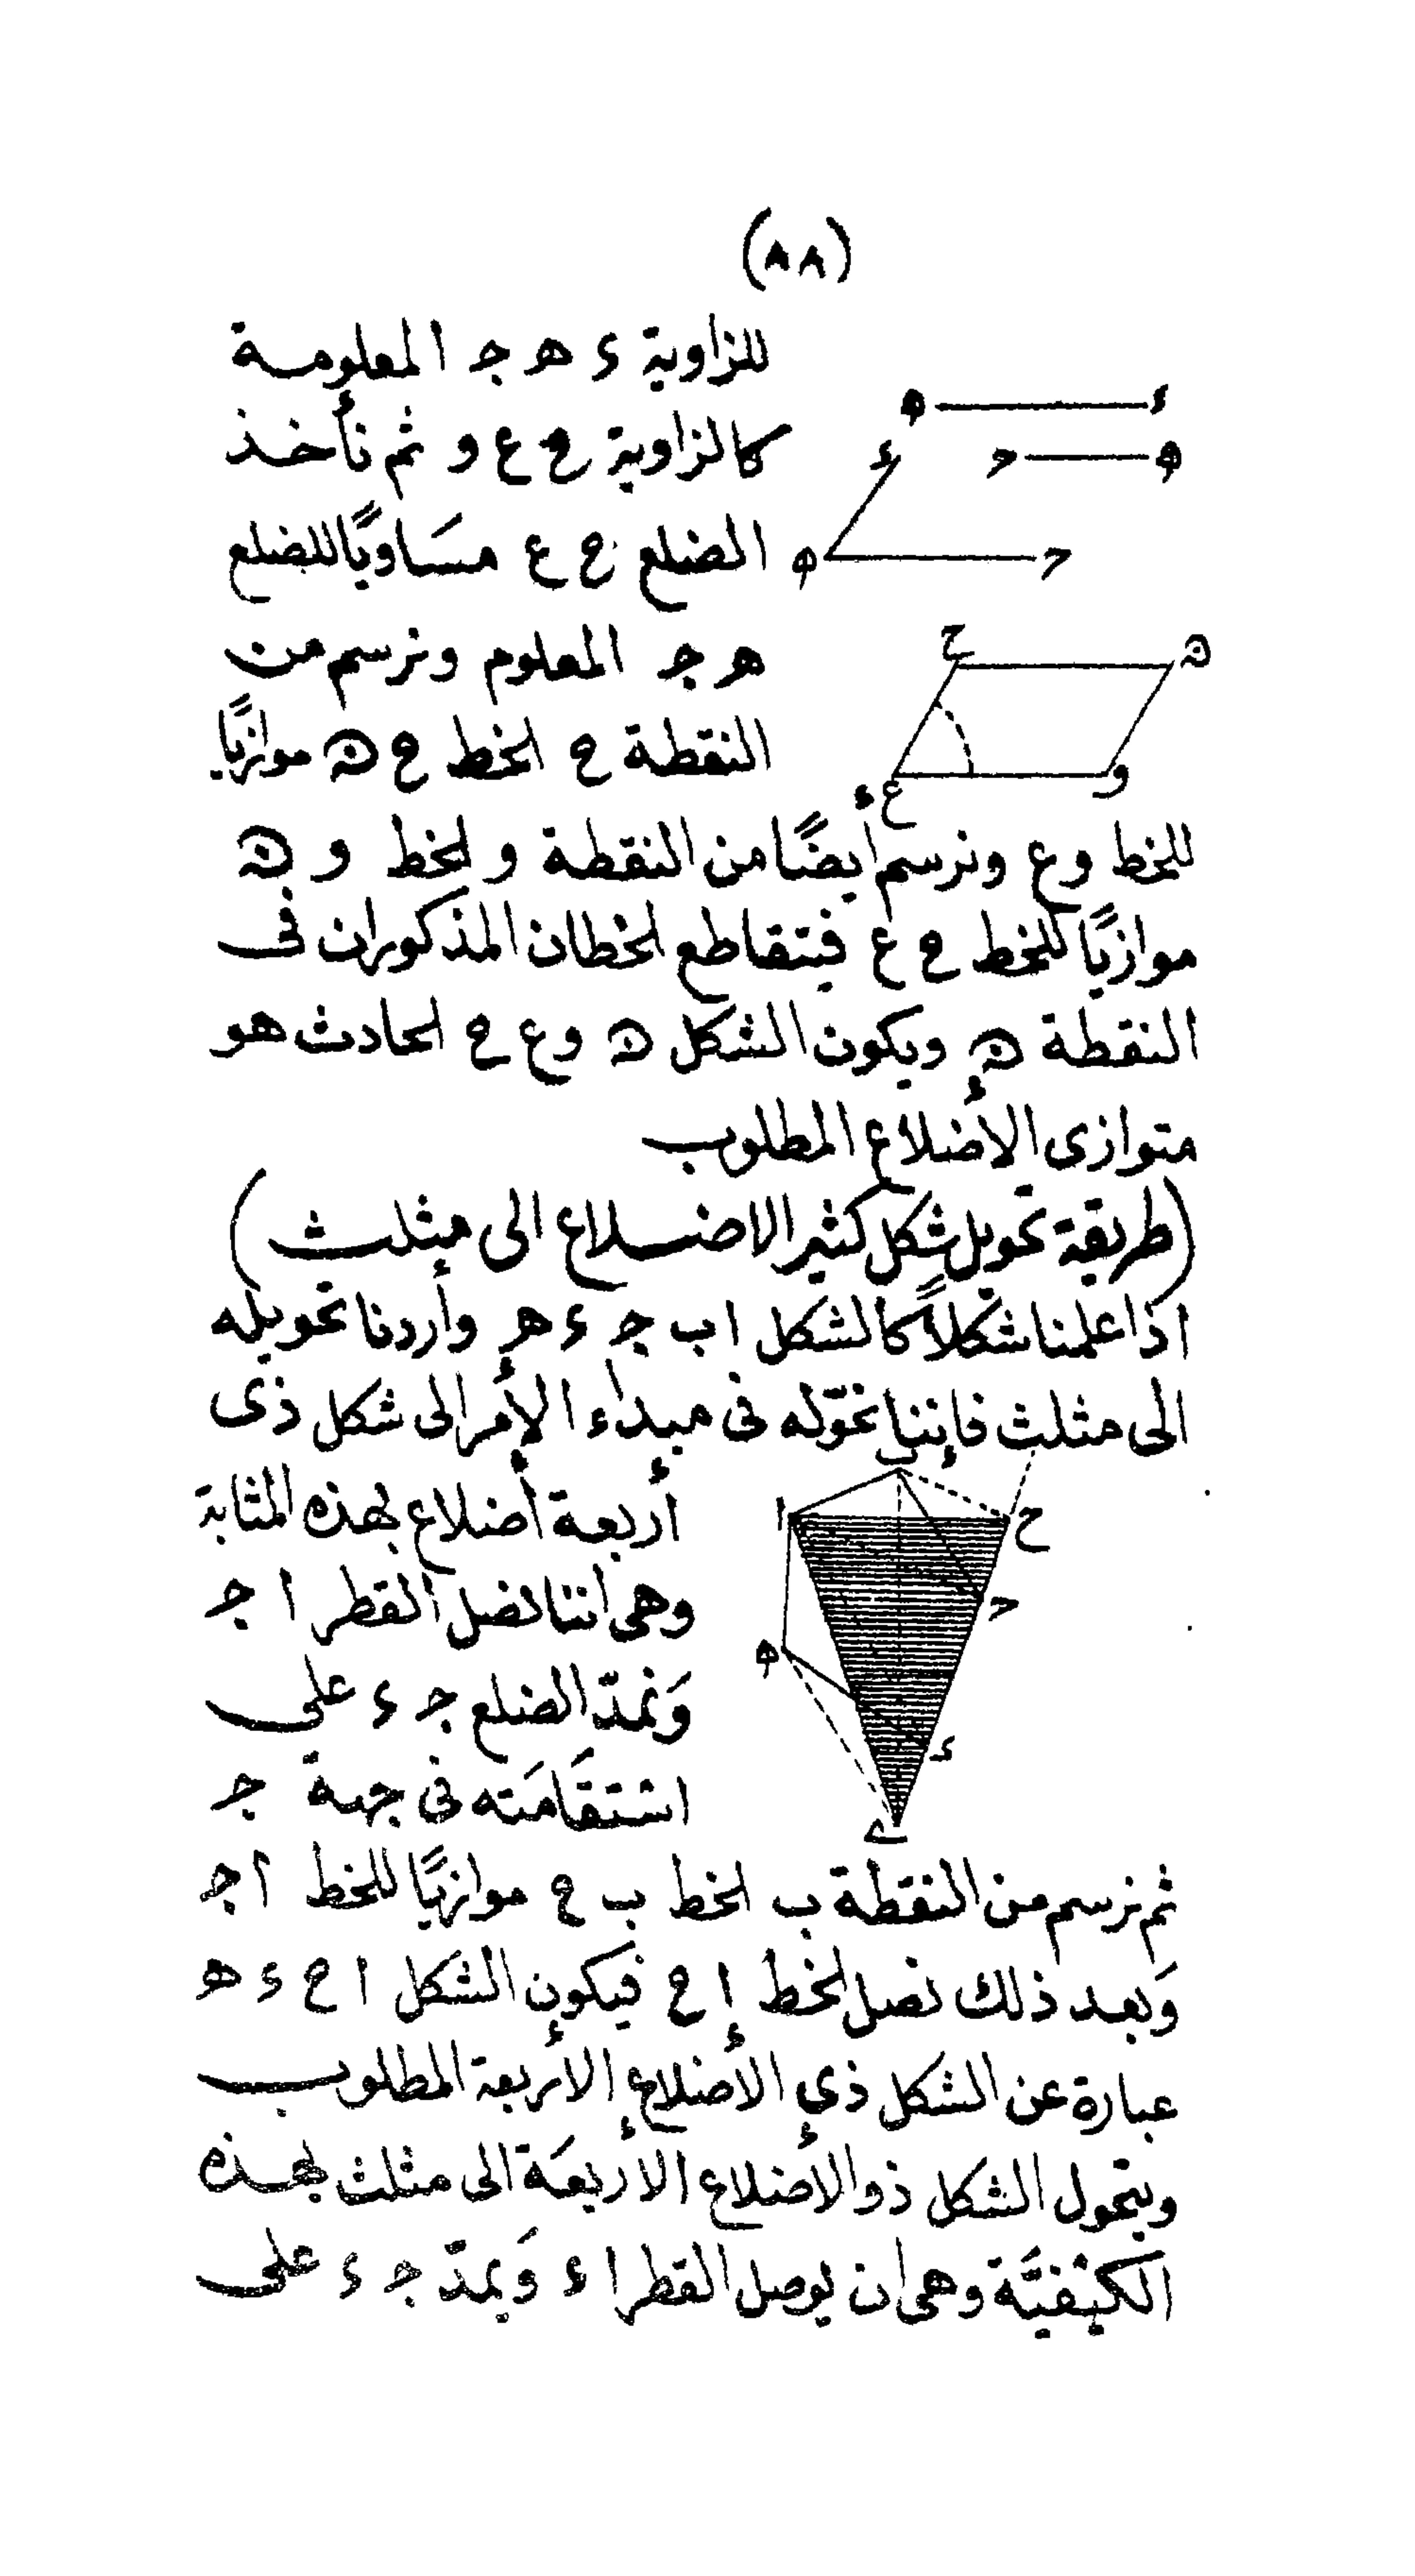 (٨٨)
للزاوية ء ھ ج المعلومة
كالزاوية ح ع و ثم نأخذ
الضلع ح ع مسَاويًا للضلع
ھ ج المعلوم ونرسم من
النقطة ح الخط ح ن موازيًا
للخط و ع ونرسم أيضًا من النقطة و الخط و ن
موازيًا للخط ح ع فيتقاطع الخطان المذكوران فى
النقطة ن ويكون الشكل ن و ع ح الحادث هو
متوازى الأضلاع المطلوب
(طريقة تحويل شكل كثير الاضلاع الى مثلث)
اذا علمنا شكلاً كالشكل ا ب ج ء ھ وأردنا تحويله
الى مثلث فإننا نحوّله فى مبداء الأمر الى شكل ذى
أربعة أضلاع بهذه المثابة
وهى اننا نصل القطر ا ج
وَنمدّ الضلع ج ء على
استقَامَته فى جهة ج
ثم نرسم من النقطة ب الخط ب ح موازيًا للخط ا ج
وَبعد ذلك نصل الخط ا ح فيكون الشكل ا ح ء ھ
عبارة عن الشكل ذي الأضلاع الأربعة المطلوب
ويتحول الشكل ذو الأضلاع الأربعَة الى مثلث بهذه
الكيفيَّة وهى ان يوصل القطر ا ء وَيمدّ ج ء على
ھ ء
ء ج ھ
ھ ج
ح ن
ع و
ب
ا ح
ج
ھ
ء
ى